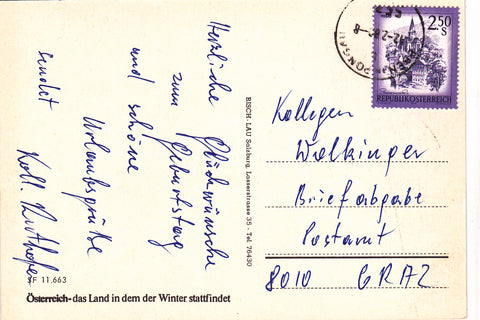 Herzliche Glückwünsche
zum Geburtstag
und schöne
Urlaubsgrüße
sendet
Koll.
SF 11.663
Österreich - das Land in dem der Winter stattfindet
BISCH. LAU Salzburg, Lasserstrasse 35 - Tel. 76430
2.50
S
REPUBLIK ÖSTERREICH
PONGAU
Kollegen
Walkinger
Briefabgabe
Postamt
8010 GRAZ